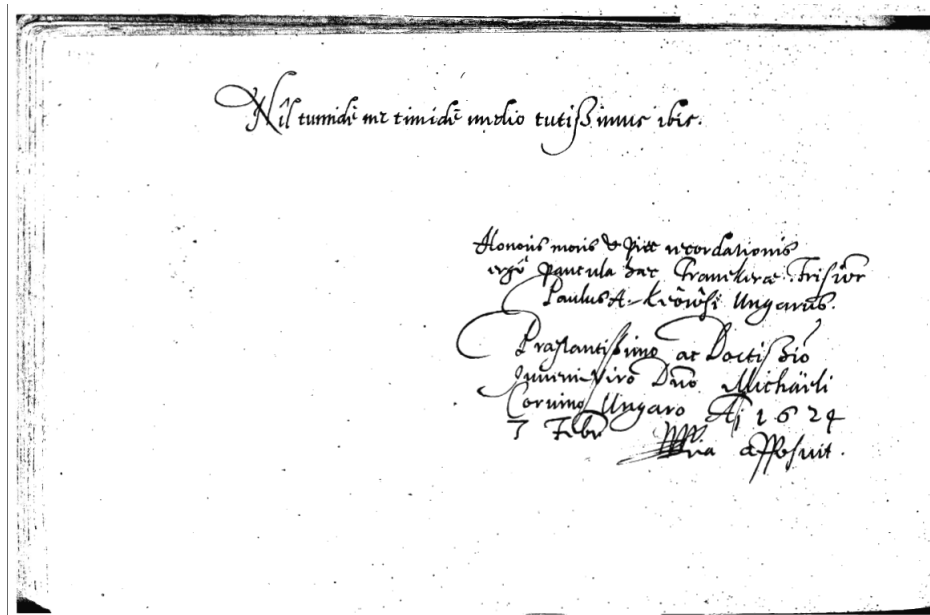 Nil tumidè nec timidè medio tutissimus ibis.
Honoris meriti & piæ recordationis
ergô paucula hæc Franekeræ Frisiôr
Paulus A. Ungarus.
Præstantissimo ac Doctissiô
Juveni Viro Dno Michäeli
Corvino Ungaro Aj 1624
7 Febr
apposuit.